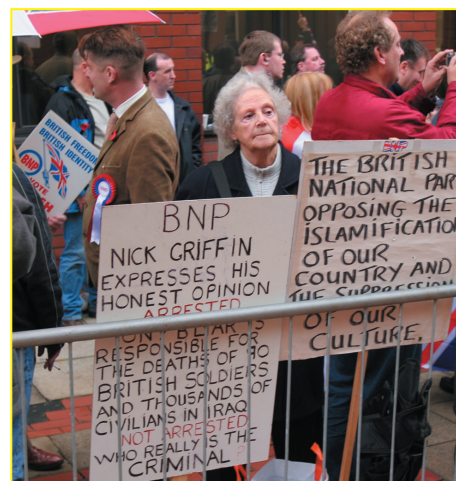 BRITISH FREEDOM
BRITISH IDENTITY
BNP
VOTE
BNP
NICK GRIFFIN
EXPRESSES HIS
HONEST OPINION
ARRESTED
RESPONSIBLE FOR
THE DEATHS OF
BRITISH SOLDIERS
AND THOUSANDS OF
CIVILIANS IN IRAQ
NOT ARRESTED
WHO REALLY IS THE
CRIMINAL ?
THE BRITISH
NATIONAL PAR
OPPOSING THE
ISLAMIFICATIO
OF OUR
COUNTRY AND
THE SUPPRESSION
OF OUR
CULTURE.